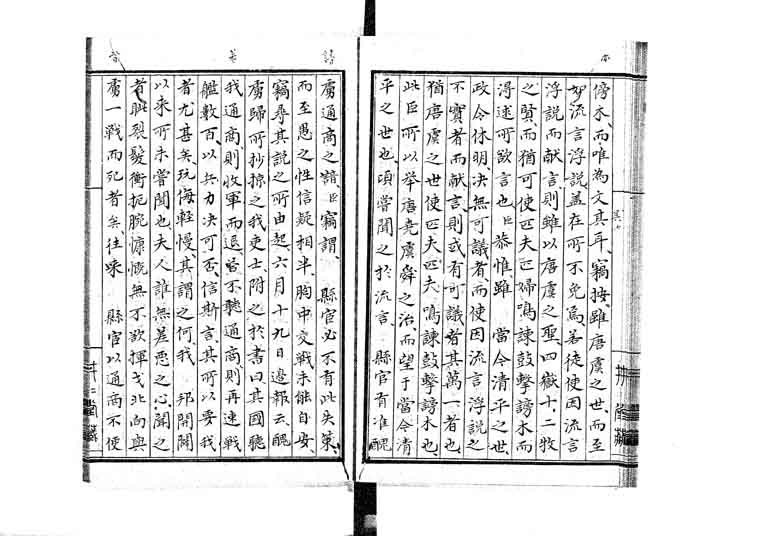 傍木而唯為文其耳、竊按、雖唐虞之世、而至
如流言浮説、蓋在所不免焉、若徒使因流言
浮説而献言、則雖以唐虞之聖、四嶽十二牧
之賢、而猶可使匹夫匹婦鳴諫鼓撃謗木、而
得述所欲言也、臣恭惟、雖 當今清平之世、
政令休明、決無可議者、而使因流言浮説之
不實者而献言、則或有可議者其萬一者也、
猶唐虞之世、使匹夫匹夫鳴諫鼓撃謗木也、
此臣所以举唐堯虞舜之治、而望于當今清
平之世也、頃嘗聞之於流言、縣官有准醜
虜通商之請、臣竊謂、 縣官必不有此失策、
而至愚之性、信疑相半、胸中交戦、未能自安、
竊尋其説之所由起、六月十九日邊報云、醜
虜歸所抄掠之我吏士、附之於書曰、其國聽
我通商、則收軍而退、若不聽通商、則再速戦
艦數百、以兵力決可否、信斯言、其所以要我
者尤甚矣、玩侮輕慢、其謂之何、我 邦開闢
以來所未嘗聞也、夫人誰無羞悪之心、聞之
者眦裂髮衝扼腕慷慨、無不欲揮戈北向與
虜一戦而死者矣、往来 縣官以通商不便